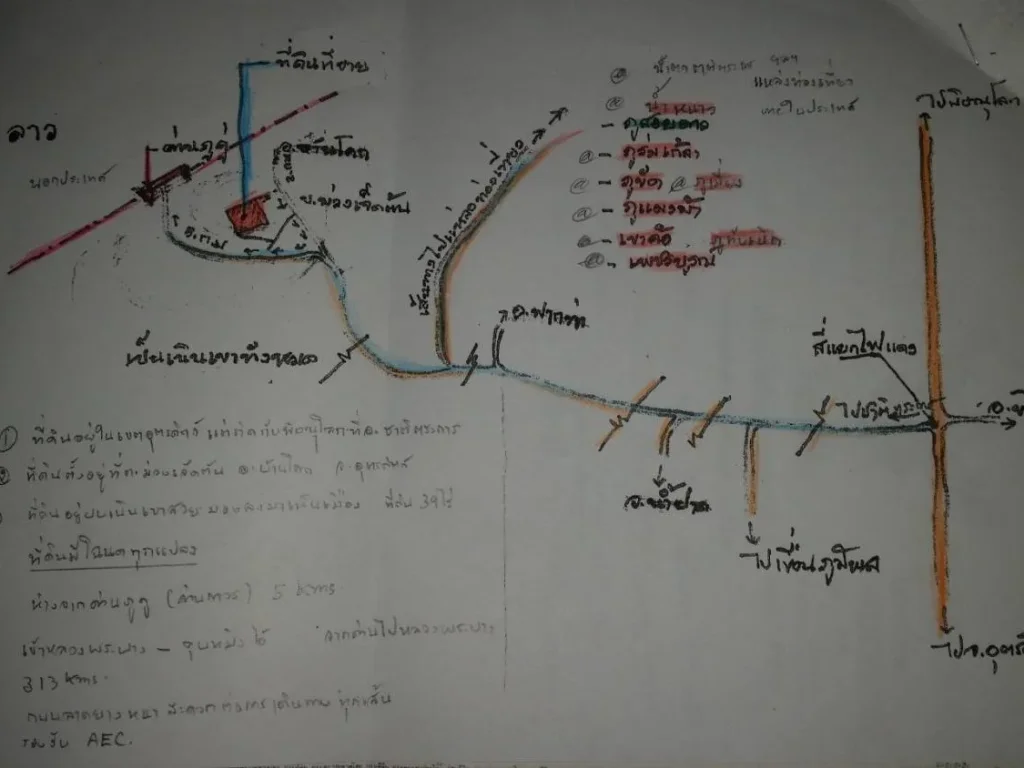 ที่ดินที่ขาย
ลาว
นอกประเทศ
ด่านภูดู่
อ.บ้านโคก
บ.ม่วงเจ็ดต้น
เส้นทางไปเขา
แหล่งท่องเที่ยว
ภายในประเทศ
น้ำหนาว
ภูสอยดาว
ภูลมโล
ภูขัด @ ภูเมี่ยง
ภูแผงม้า
เขาค้อ ภูทับเบิก
เพชรบูรณ์
ไปพิษณุโลก
อ.ฟากท่า
เป็นเนินเขาทั้งหมด
สี่แยกไฟแดง
ไปชาติตระการ
อ.น้ำปาด
ไปเขื่อนภูมิพล
ไป จ.อุตร
① ที่ดินอยู่ในเขตอุตรดิตถ์ แต่ติดกับพิษณุโลกที่อ.ชาติตระการ
ที่ดินตั้งอยู่ที่ต.ม่วงเจ็ดต้น อ.บ้านโคก จ.อุตรดิตถ์
ที่ดินอยู่บนเนินเขาสวย มองลงมาเห็นเมือง ที่ดิน 39 ไร่
ที่ดินมีโฉนดทุกแปลง
ห่างจากด่านภูดู่ (ด่านถาวร) 5 kms
เข้าหลวงพระบาง – คุนหมิงได้ จากด่านไปหลวงพระบาง
313 kms.
ถนนลาดยางหมด สะดวกต่อการเดินทางทุกเส้น
รองรับ AEC.